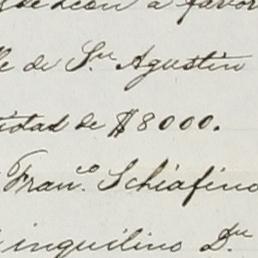 de Leon a favor
de S.n Agustin
tidad de $8000.
Fran.co Schiafino
inquilino D.n